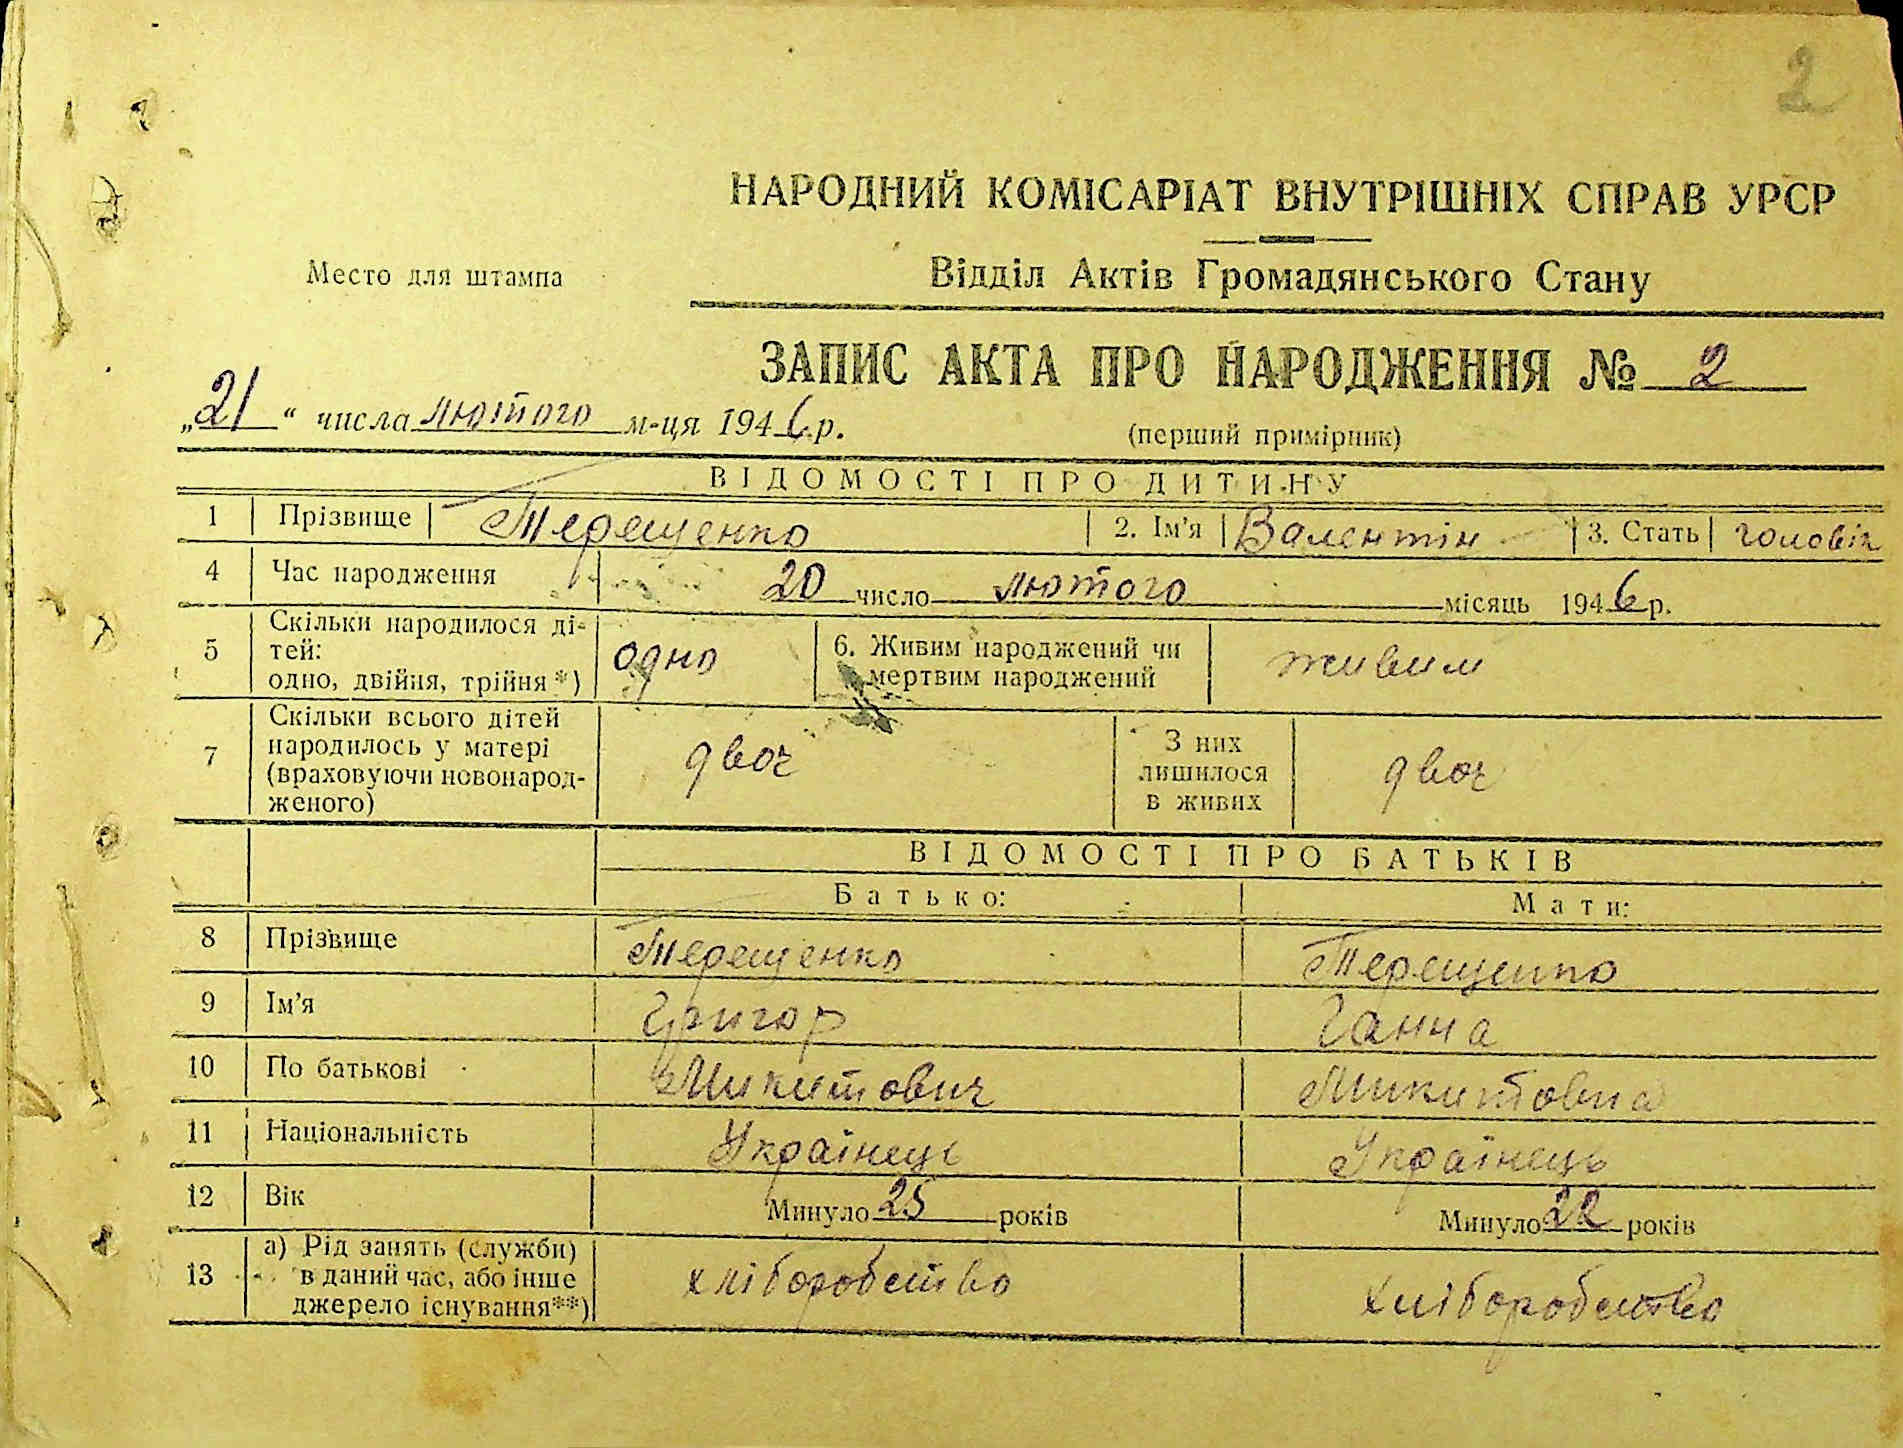 2
НАРОДНИЙ КОМІСАРІАТ ВНУТРІШНІХ СПРАВ УРСР
Место для штампа
Відділ Актів Громадянського Стану
ЗАПИС АКТА ПРО НАРОДЖЕННЯ № 2
„21“ числа лютого м-ця 1946 р.
(перший примірник)
ВІДОМОСТІ ПРО ДИТИНУ
1 Прізвище Терещенко 2. Ім'я Валентін 3. Стать головік
4 Час народження 20 число лютого місяць 1946 р.
5 Скільки народилося ді-
тей:
одно, двійня, трійня*) одно 6. Живим народжений чи
мертвим народжений живим
7 Скільки всього дітей
народилось у матері
(враховуючи новонарод-
женого) двоч З них
лишилося
в живих двоч
ВІДОМОСТІ ПРО БАТЬКІВ
Батько: Мати:
8 Прізвище Терещенко Терещенко
9 Ім'я Григор Ганна
10 По батькові Микитович Микитовна
11 Національність Українець Українець
12 Вік Минуло 25 років Минуло 22 років
13 а) Рід занять (служби)
в даний час, або інше
джерело існування**) хліборобство хліборобство